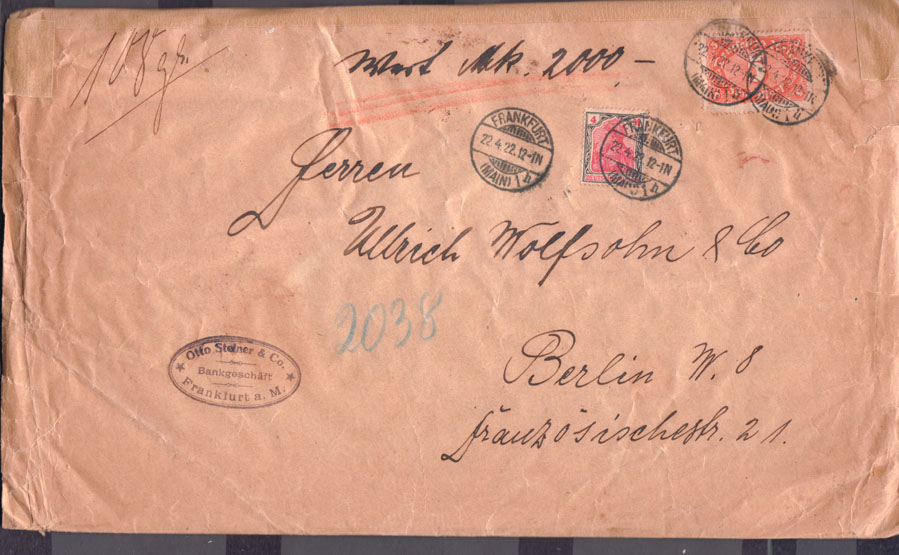 108 gr.
Wert Mk. 2000 –
4 4
FRANKFURT
22.4.22.12-1N
(MAIN) 1 b
FRANKFURT
22.4.22.12-1N
(MAIN) 1 b
Herren
Ullrich Wolfsohn & Co
2038
Berlin W. 8
Französischestr. 21.
Otto Steiner & Co.
Bankgeschäft
Frankfurt a. M.